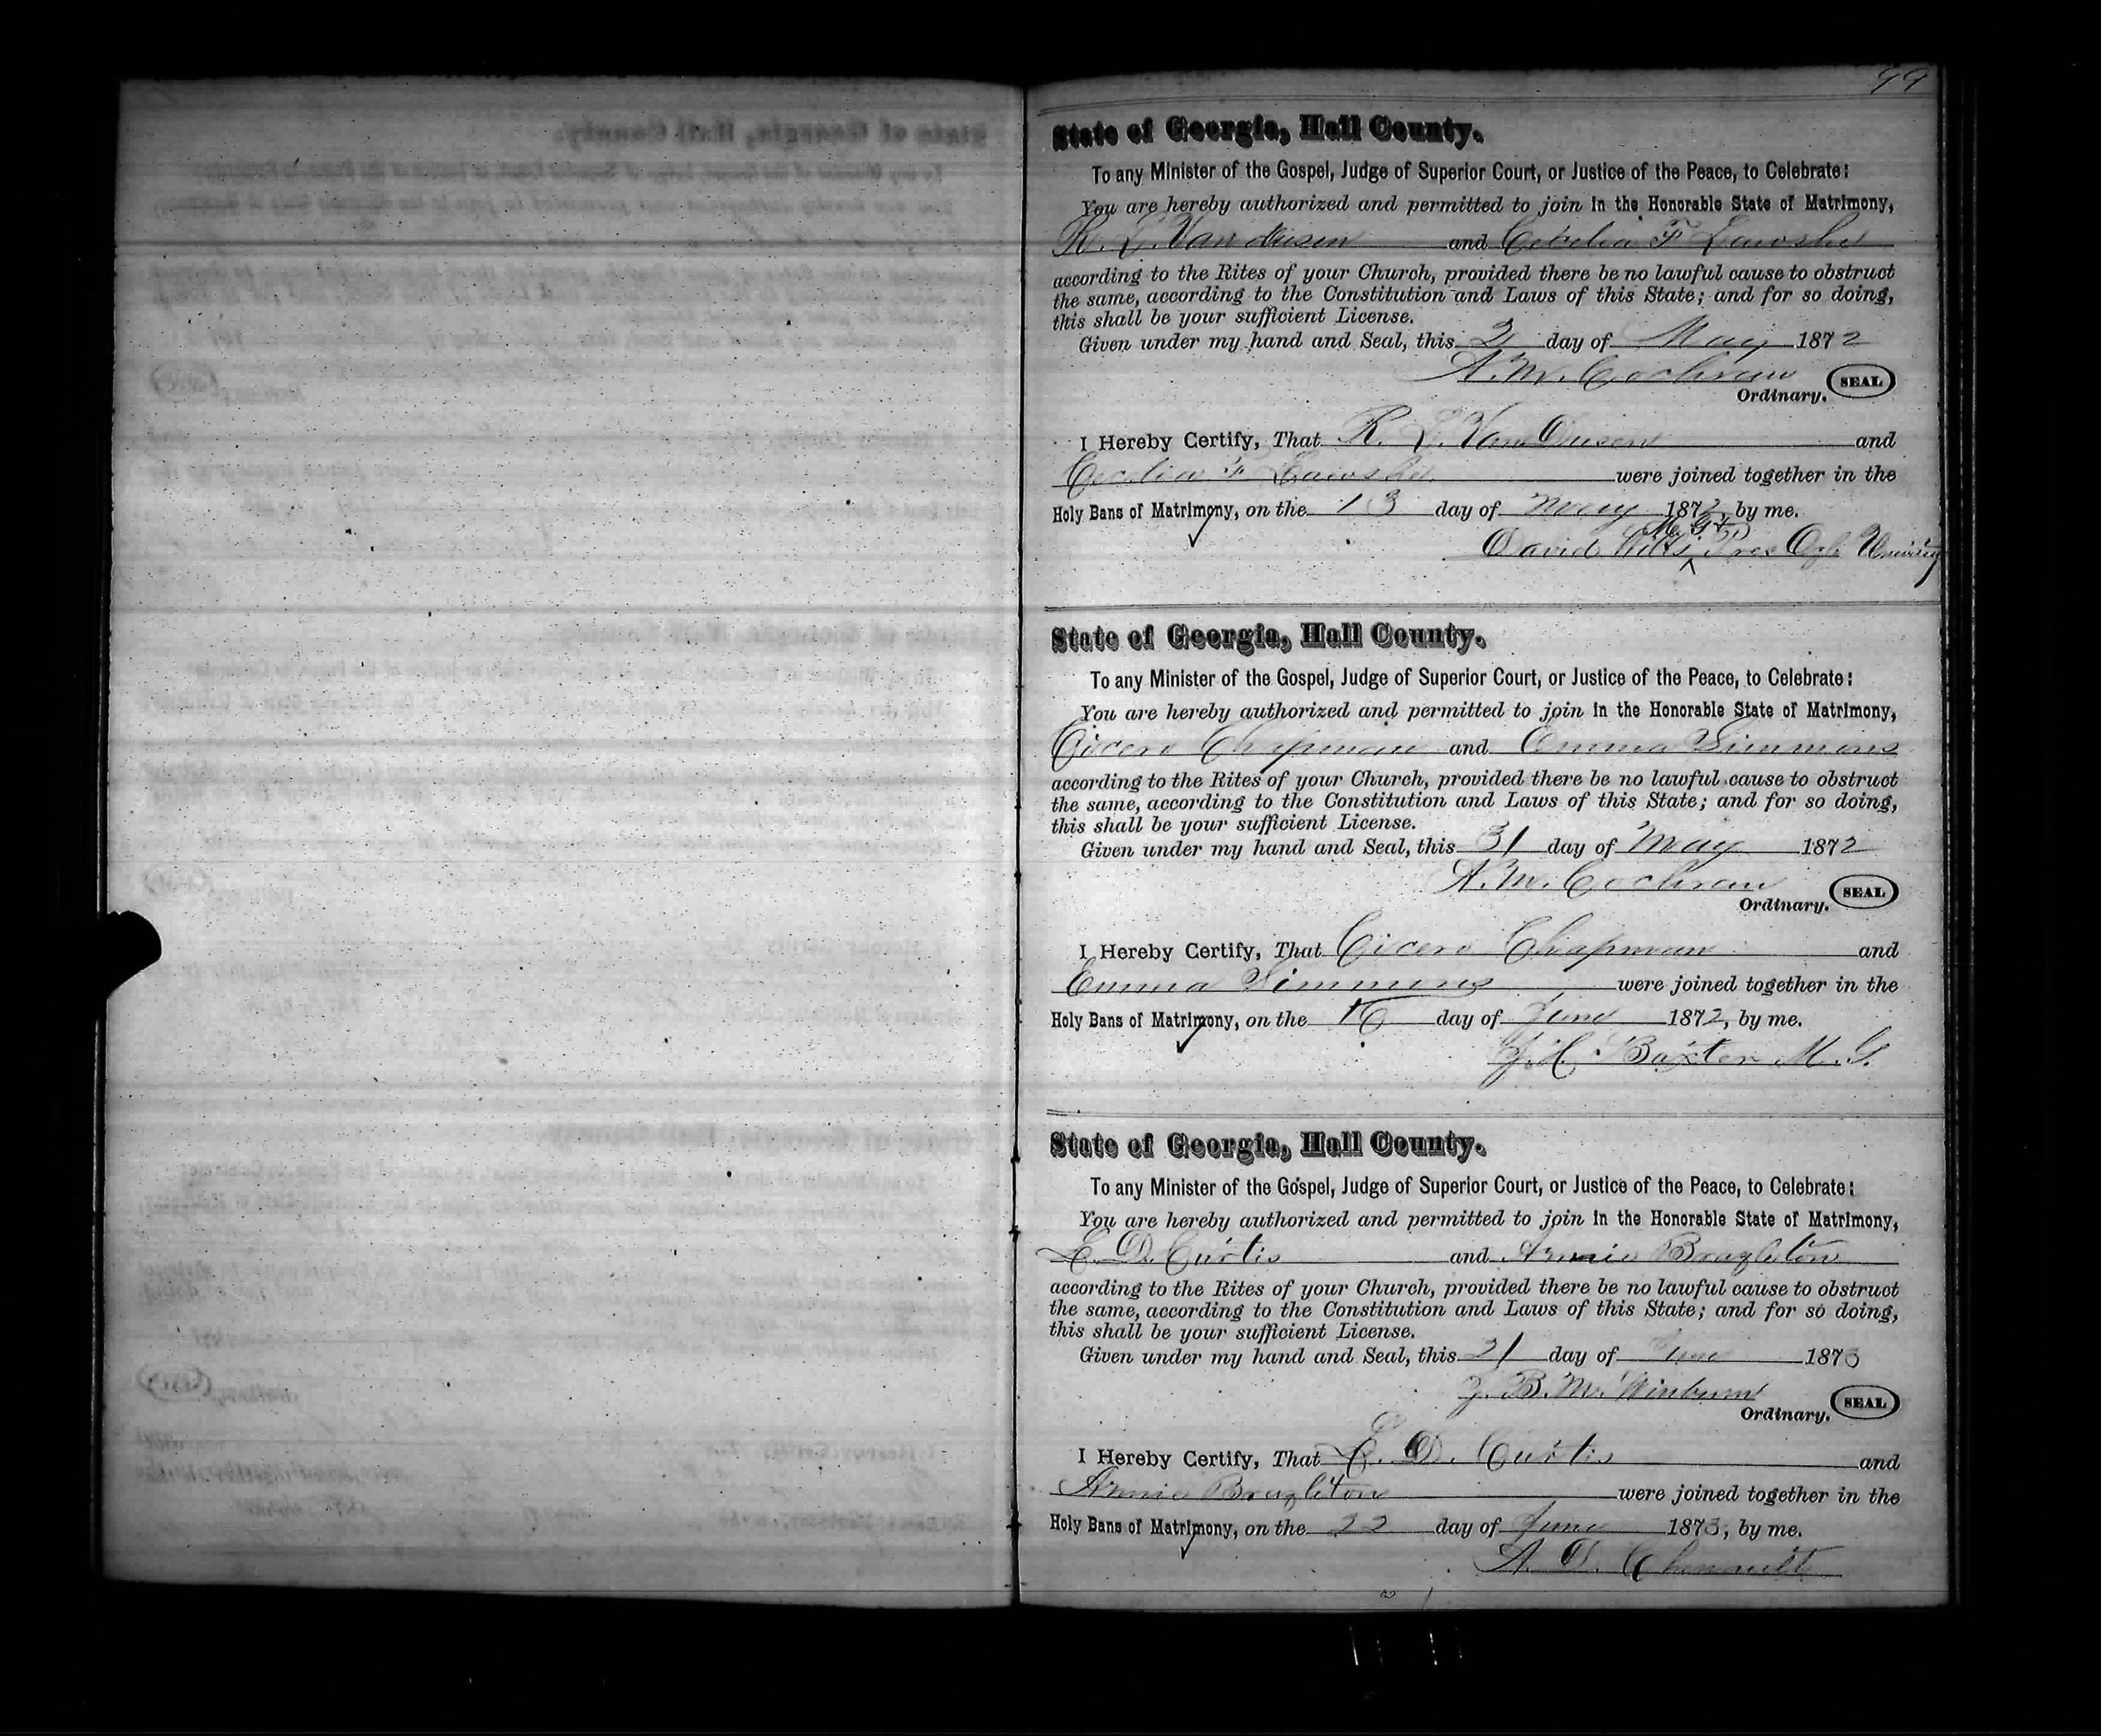 99
State of Georgia, Hall County.
To any Minister of the Gospel, Judge of Superior Court, or Justice of the Peace, to Celebrate:
You are hereby authorized and permitted to join in the Honorable State of Matrimony,
R. L. Van deusen and Cecelia F
according to the Rites of your Church, provided there be no lawful cause to obstruct
the same, according to the Constitution and Laws of this State; and for so doing,
this shall be your sufficient License.
Given under my hand and Seal, this 2 day of May 1872
A. M. Cochran SEAL
Ordinary.
I Hereby Certify, That R. L. Van Deusen and
Cecelia F were joined together in the
Holy Bans of Matrimony, on the 13 day of May 1872, by me.
M. G. &
David Wills Pres Ogl. University
State of Georgia, Hall County.
To any Minister of the Gospel, Judge of Superior Court, or Justice of the Peace, to Celebrate:
You are hereby authorized and permitted to join in the Honorable State of Matrimony,
Cicero Chapman and Emma Simmons
according to the Rites of your Church, provided there be no lawful cause to obstruct
the same, according to the Constitution and Laws of this State; and for so doing,
this shall be your sufficient License.
Given under my hand and Seal, this 31 day of May 1872
A. M. Cochran SEAL
Ordinary.
I Hereby Certify, That Cicero Chapman and
Emma Simmons were joined together in the
Holy Bans of Matrimony, on the 16 day of June 1872, by me.
J. H. Baxter M. G.
State of Georgia, Hall County.
To any Minister of the Gospel, Judge of Superior Court, or Justice of the Peace, to Celebrate:
You are hereby authorized and permitted to join in the Honorable State of Matrimony,
E. D. Curtis and Annie
according to the Rites of your Church, provided there be no lawful cause to obstruct
the same, according to the Constitution and Laws of this State; and for so doing,
this shall be your sufficient License.
Given under my hand and Seal, this 21 day of June 1873
J. B. M. Winburn SEAL
Ordinary.
I Hereby Certify, That E. D. Curtis and
Annie were joined together in the
Holy Bans of Matrimony, on the 22 day of June 1873, by me.
A. D.